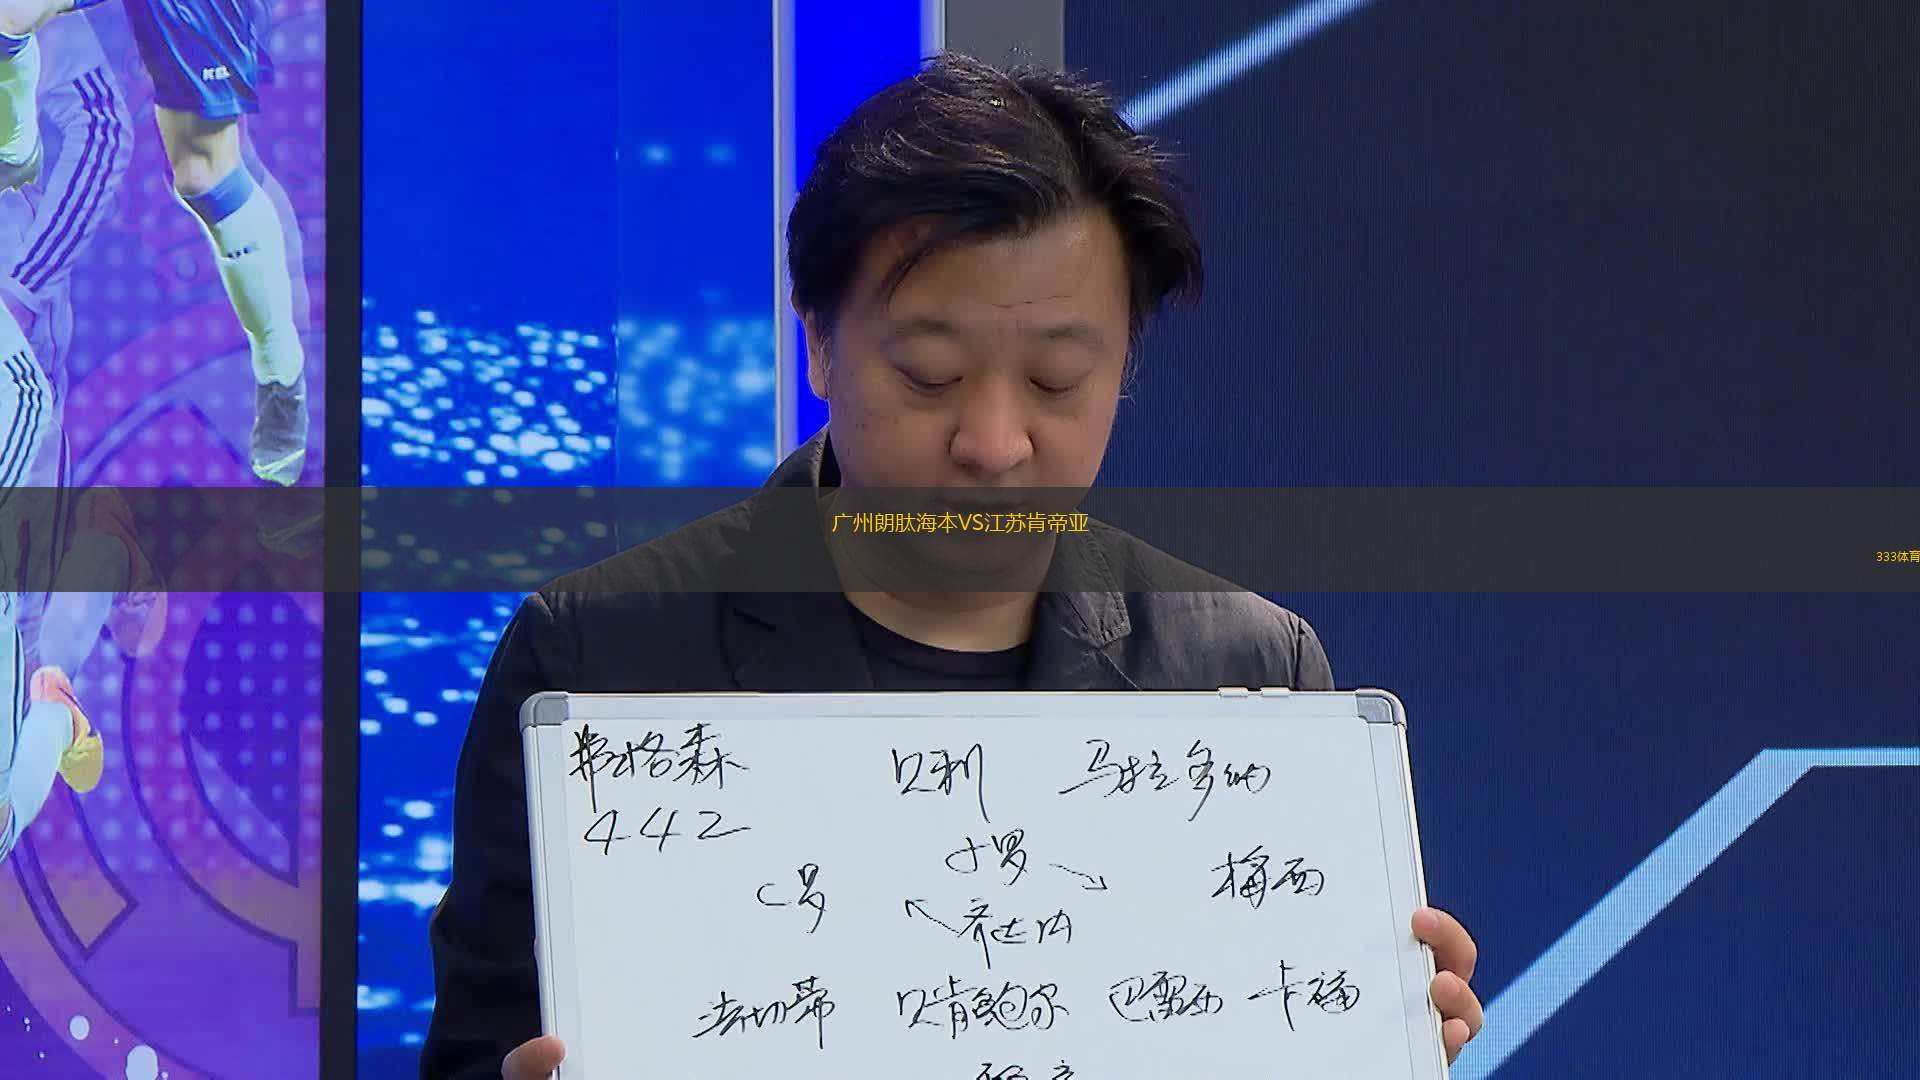 广州朗肽海本VS江苏肯帝亚
333体育
弗格森 贝利 马拉多纳
442
小罗
C罗 梅西
齐达内
法切蒂 贝肯鲍尔 巴雷西 卡福